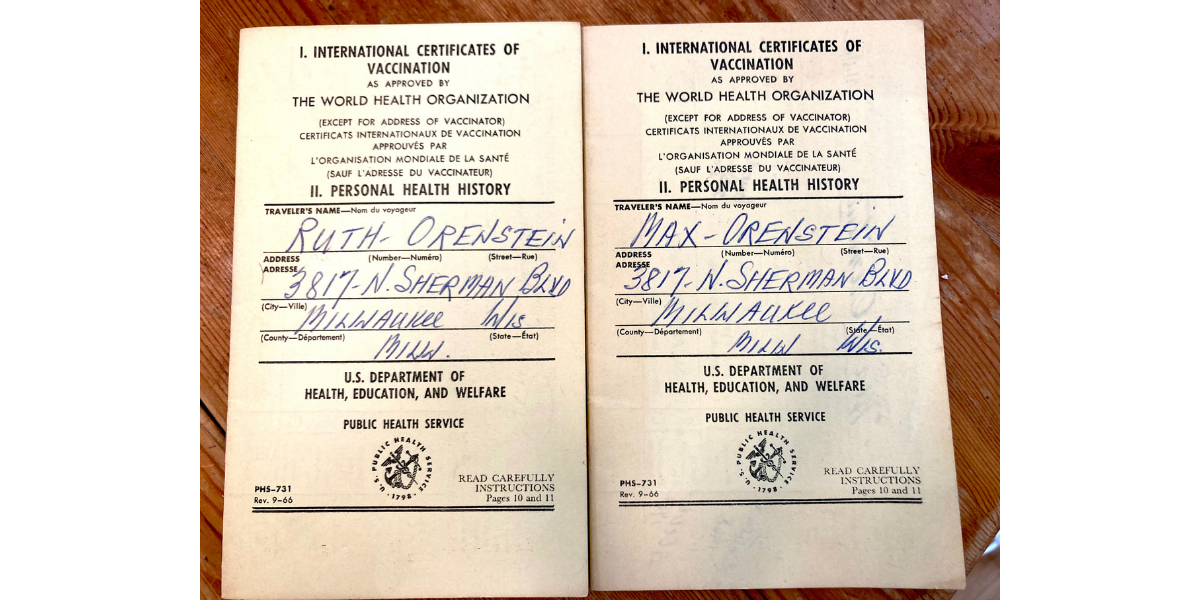 I. INTERNATIONAL CERTIFICATES OF
VACCINATION
AS APPROVED BY
THE WORLD HEALTH ORGANIZATION
(EXCEPT FOR ADDRESS OF VACCINATOR)
CERTIFICATS INTERNATIONAUX DE VACCINATION
APPROUVÉS PAR
L'ORGANISATION MONDIALE DE LA SANTÉ
(SAUF L'ADRESSE DU VACCINATEUR)
II. PERSONAL HEALTH HISTORY
TRAVELER'S NAME—Nom du voyageur
RUTH- ORENSTEIN
ADDRESS (Number—Numéro) (Street—Rue)
ADRESSE
3817-N. SHERMAN BLVD
(City—Ville)
MILWAUKEE WIS
(County—Département) (State—État)
MILW.
U.S. DEPARTMENT OF
HEALTH, EDUCATION, AND WELFARE
PUBLIC HEALTH SERVICE
U.S. PUBLIC HEALTH SERVICE
· 1798 ·
PHS-731
Rev. 9-66
READ CAREFULLY
INSTRUCTIONS
Pages 10 and 11
I. INTERNATIONAL CERTIFICATES OF
VACCINATION
AS APPROVED BY
THE WORLD HEALTH ORGANIZATION
(EXCEPT FOR ADDRESS OF VACCINATOR)
CERTIFICATS INTERNATIONAUX DE VACCINATION
APPROUVÉS PAR
L'ORGANISATION MONDIALE DE LA SANTÉ
(SAUF L'ADRESSE DU VACCINATEUR)
II. PERSONAL HEALTH HISTORY
TRAVELER'S NAME—Nom du voyageur
MAX-ORENSTEIN
ADDRESS (Number—Numéro) (Street—Rue)
ADRESSE
3817-N. SHERMAN BLVD
(City—Ville)
MILWAUKEE
(County—Département) (State—État)
MILW WIS.
U.S. DEPARTMENT OF
HEALTH, EDUCATION, AND WELFARE
PUBLIC HEALTH SERVICE
U.S. PUBLIC HEALTH SERVICE
· 1798 ·
PHS-731
Rev. 9-66
READ CAREFULLY
INSTRUCTIONS
Pages 10 and 11